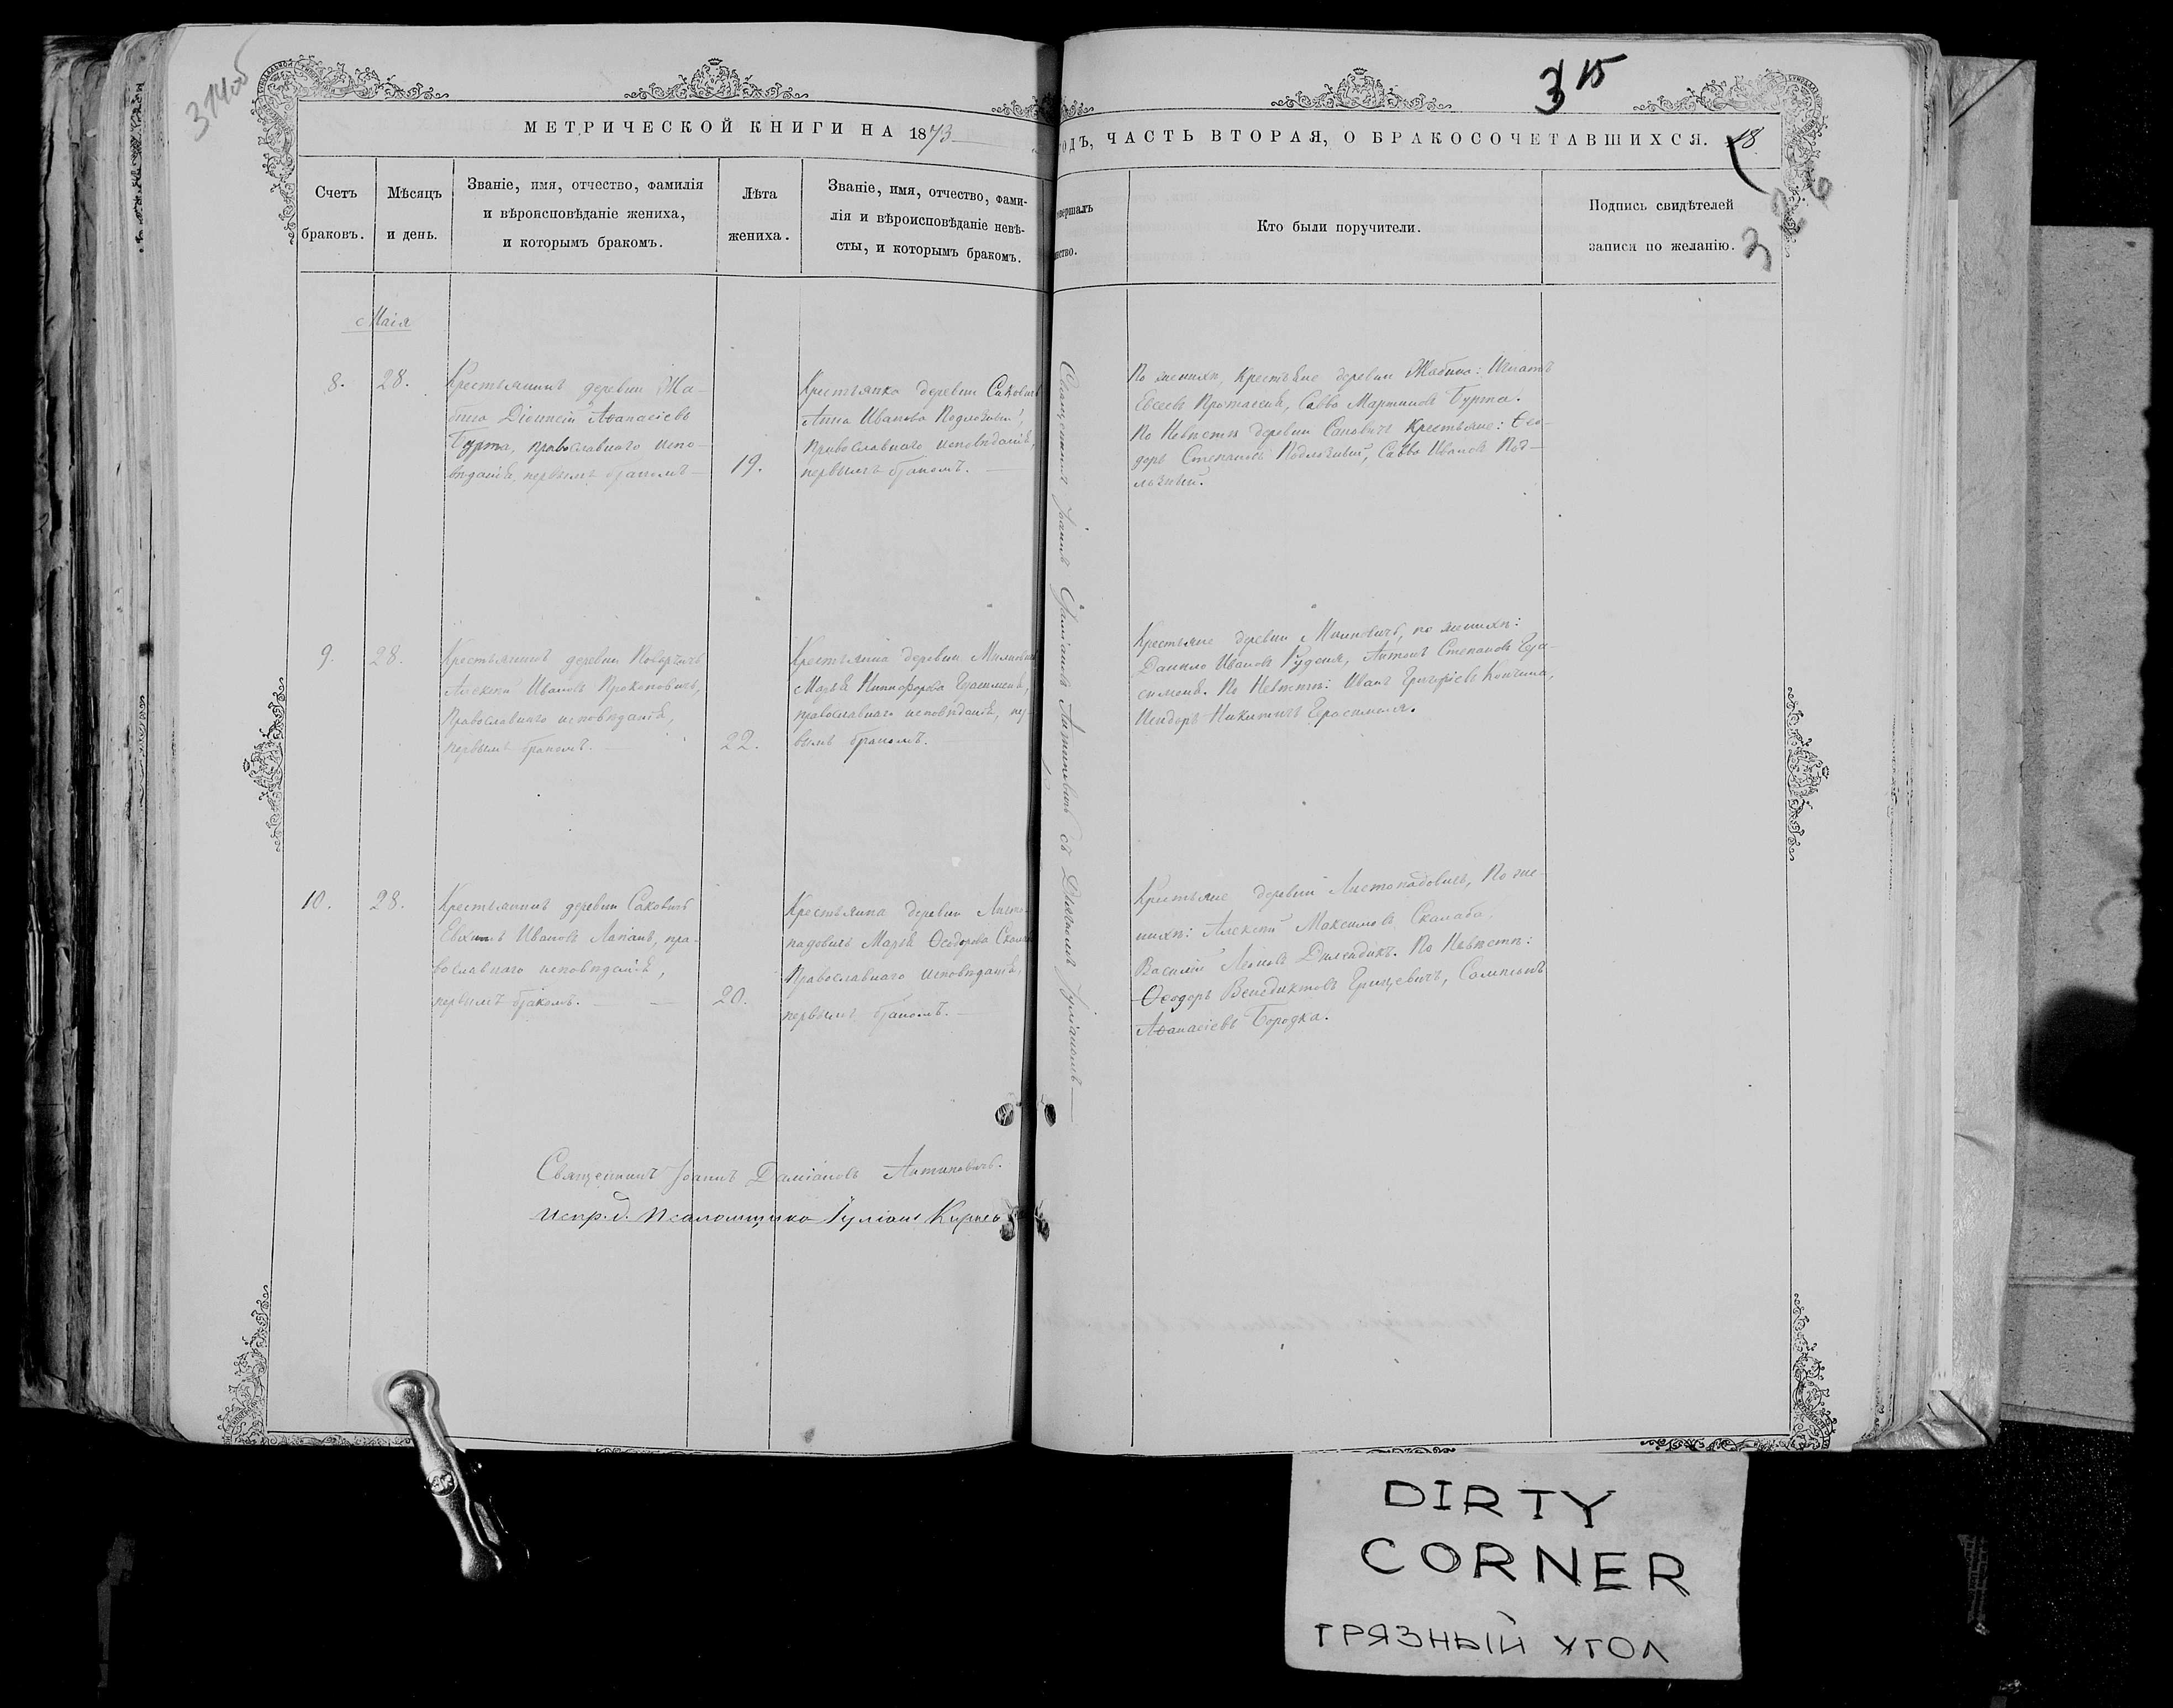 314об
315
МЕТРИЧЕСКОЙ КНИГИ НА 1873
ГОДЪ, ЧАСТЬ ВТОРАЯ, О БРАКОСОЧЕТАВШИХСЯ. 18
326
Счетъ
браковъ.
Мѣсяцъ
и день.
Званіе, имя, отчество, фамилія
и вѣроисповѣданіе жениха,
и которымъ бракомъ.
Лѣта
жениха.
Званіе, имя, отчество, фами-
лія и вѣроисповѣданіе невѣ-
сты, и которымъ бракомъ.
Кто были поручители.
Подпись свидѣтелей
записи по желанію.
Маія
8.
28.
Крестьянинъ деревни Жа-
бина Діонисій Аѳанасіевъ
Бурта, православнаго испо-
вѣданія, первымъ бракомъ
19.
Крестьянка деревни Саковичъ
Анна Иванова
православнаго исповѣданія,
первымъ бракомъ.
По женихѣ, крестьяне деревни Жабина: Игнатъ
Евсеевъ Протасеня, Савва Мартиновъ Бурта.
По Невѣстѣ деревни Саковичъ крестьяне: Ѳео-
доръ Степановъ Савва Ивановъ Под-
9.
28.
Крестьянинъ деревни
Алексѣй Ивановъ Прокоповичъ,
Православнаго исповѣданія,
первымъ бракомъ.
22.
Крестьянка деревни
Марья Никифорова Герасименя,
православнаго исповѣданія, пер-
вымъ бракомъ.
Крестьяне деревни по женихѣ:
Данило Ивановъ Руденя, Антонъ Степановъ Гера-
сименя. По Невѣстѣ: Иванъ Григорьевъ
Исидоръ Никитинъ Герасименя.
10.
28.
Крестьянинъ деревни Саковичъ
Евхимъ Ивановъ Лапанъ, пра-
вославнаго исповѣданія,
первымъ бракомъ.
20.
Крестьянка деревни Листо-
падовичъ Марья Ѳеодорова
Православнаго исповѣданія,
первымъ бракомъ.
Крестьяне деревни Листопадовичъ, По же-
нихѣ: Алексѣй Максимовъ Скалаба,
Василій Леоновъ По Невѣстѣ:
Ѳеодоръ Венедиктовъ Грицевичъ, Сампсонъ
Аѳанасіевъ Бородка.
Священникъ Іоаннъ Даміановъ Антиповичъ съ Дьячкомъ Іуліаномъ
Священникъ Іоаннъ Даміановъ Антиповичъ.
Испр. д. Псаломщика Іуліанъ
DIRTY
CORNER
ГРЯЗНЫЙ УГОЛ